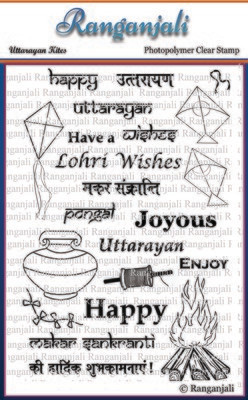 Ranganjali
Uttarayan Kites
Photopolymer Clear Stamp
happy उत्तरायण
uttarayan
Have a wishes
Lohri Wishes
मकर संक्रान्ति
pongal
Joyous
Uttarayan
ENJOY
Happy
makar sankranti
की हार्दिक शुभकामनाएं!
© Ranganjali